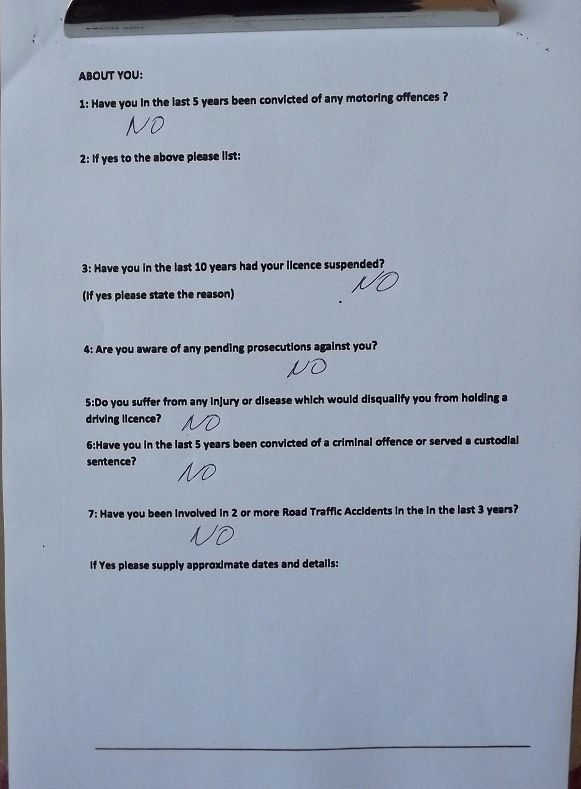 ABOUT YOU:
1: Have you in the last 5 years been convicted of any motoring offences ?
NO
2: If yes to the above please list:
3: Have you in the last 10 years had your licence suspended?
NO
(If yes please state the reason)
4: Are you aware of any pending prosecutions against you?
NO
5:Do you suffer from any injury or disease which would disqualify you from holding a
driving licence? NO
6:Have you in the last 5 years been convicted of a criminal offence or served a custodial
sentence?
NO
7: Have you been involved in 2 or more Road Traffic Accidents in the in the last 3 years?
NO
If Yes please supply approximate dates and details: